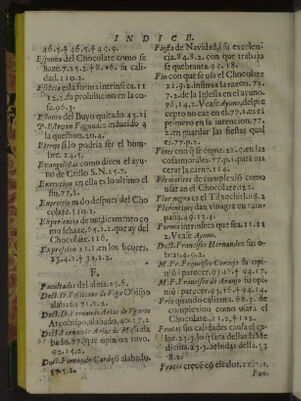 INDICE.
46.5.4 46.5.4 49.9.
Espuma del Chocolate como se
haze. 7.25.2.4 8.26. su cali-
dad. 110.2.
Esencia es la forma intrinseca. 11
12.2. su prohibicion en la co-
sa. 96.3.
Estanco del Buyo quitado. 43.21
P. Estevan Fagundez
la question. 20.4.
Eterno si lo podria ser el hom-
bre. 24.5.
Evangelistas como dicen el ayu-
no de Cristo S.N. 25.7.
Execucion en ella es lo ultimo el
fin. 77.2.
Exercicio malo despues del Cho
colate. 110.2.
Experiencia de medicamento co
mo se haze, 65.2.2. que ay del
Chocolate. 116.
en los licores.
23.4.2.4 31.1.2.
F.
Facultades del alma. 25.6.
Doct. D. Feliciano de Vega Obispo
alabado.
Doct. D. Fernando Arias de Ugarte
Arçobispo, alabado. 40.
Doct. Fernando Arias de Mesa ala
bado. 67. que opinion tuvo,
92.15.2.
Doct. Fernando Cardoso alabado.
57.5.2.
Fiesta de Navidad, i su excelen-
cia. 84.8.2. con que trabajo
se quebranta. 99.18.
Fin con que se usò el Chocolate
21.9.2. instina la razon. 73.
7.2. de la Iglesia en el ayuno.
76.14.2. Vease Ayuno. del pre
cepto no cae en el. 77.1. es
primero en la intencion. 77.
2. en guardar las fiestas qual
es. 77. p.2.
Fines con que se come. 22.5. en las
cosas morales. 77. p.1. para ma
tar la carne. 114.
Flematicos de complexion como
usar an el Chocolate. 12.2.
Flor negra es el Tlixochil. 18.2.
Florentines dan vinagre en cam-
paña. 49.13.1.
Forma intrinseca que sea. 11.12
2. Vease Ayuno.
Doct. Francisco Hernandez sus o-
bras. 4.9.2.
M. Fr. Francisco Cornejo su opi
niõ i parecer. 93.16.4 94.17.
M. Fr. Francisco de Araujo su opi
niõ i parecer. 93.16.4 94.14.
Frio quando calienta. 66.3. de
complexion como usarà el
Chocolate. 11.2.4 12.2.
Frutas sus calidades causa el ca-
lor. 23.3. lo q̃ saca dellas la Me
dicina. 23.3. bebidas dellas. 53
8.2.
Frutas creceó còel calor. 22.2.
Fun-